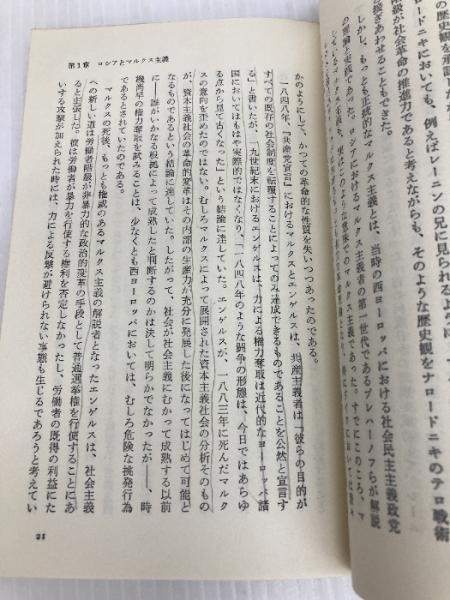 の歴史観を承認した
ドニキにおいても、例えばレーニンの兄に見られるように、
級が社会革命の推進力であると考えながらも、そのような歴史観をナロードニキのテロ戦術
扱ぎあわせることもできた。
しかし、もっとも正統的なマルクス主義とは、当時の西ヨーロッパにおける社会民主主義政党
の理解と実践であった。ロシアにおけるマルクス主義者の第一世代であるプレハーノフらが解説
第1章 ロシアとマルクス主義
かのようにして、かつての革命的な性質を失いつつあったのである。
一八四八年、『共産党宣言』におけるマルクスとエンゲルスは、共産主義者は「彼らの目的が
すべての既存の社会制度を転覆することによってのみ達成できるものであることを公然と宣言す
る」と書いたが、一九世紀末におけるエンゲルスは、力による権力奪取は近代的なヨーロッパ諸
国においてはもはや実際的ではなくなり、「一八四八年のような闘争の形態は、今日ではあらゆ
る点から見て古くなった」という結論に達していた。エンゲルスが、一八八三年に死んだマルク
スの意向を歪めたのではない。むしろマルクスによって展開された資本主義社会の分析そのもの
が、資本主義社会の革命的変革はその内部の生産力が充分に発展した後になってはじめて可能と
なるものであるという結論に達していた。したがって、社会が社会主義にむかって成熟する以前
に――誰がいかなる根拠によって成熟したと判断するのかは決して明らかでなかったが――、時
機尚早の権力奪取を試みることは、少なくとも西ヨーロッパにおいては、むしろ危険な挑発行為
であるとされていたのである。
マルクスの死後、もっとも権威のあるマルクス主義の解説者となったエンゲルスは、社会主義
への新しい道は労働者階級が非暴力的な政治的変革の手段として普通選挙権を行使することにあ
ると主張した。彼は労働者が暴力を行使する権利を否定しなかったし、労働者の既得の利益にた
いする攻撃が加えられた時には、力による反撃が避けられない事態も生じるであろうと考えてい
21